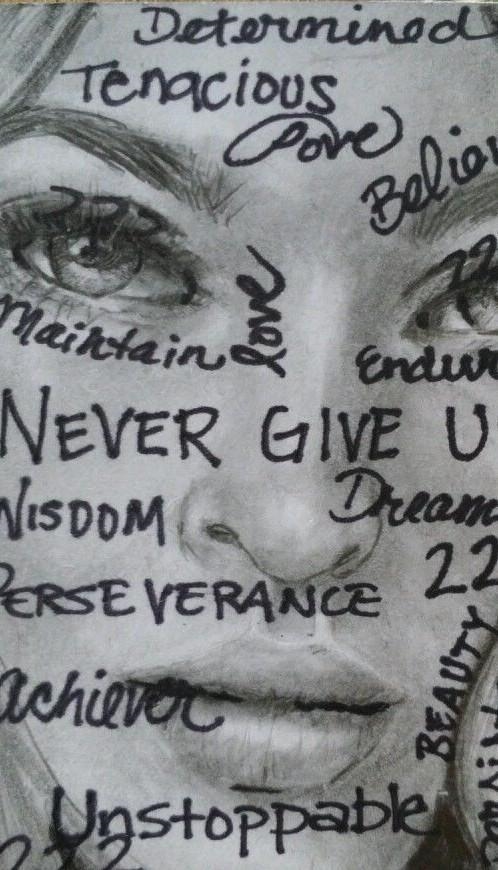 Determined
Tenacious
Love
Believ
222
22
Maintain
love
Endur
NEVER GIVE U
WISDOM
Dream
22
PERSEVERANCE
BEAUTY
achiever
Unstoppable
222